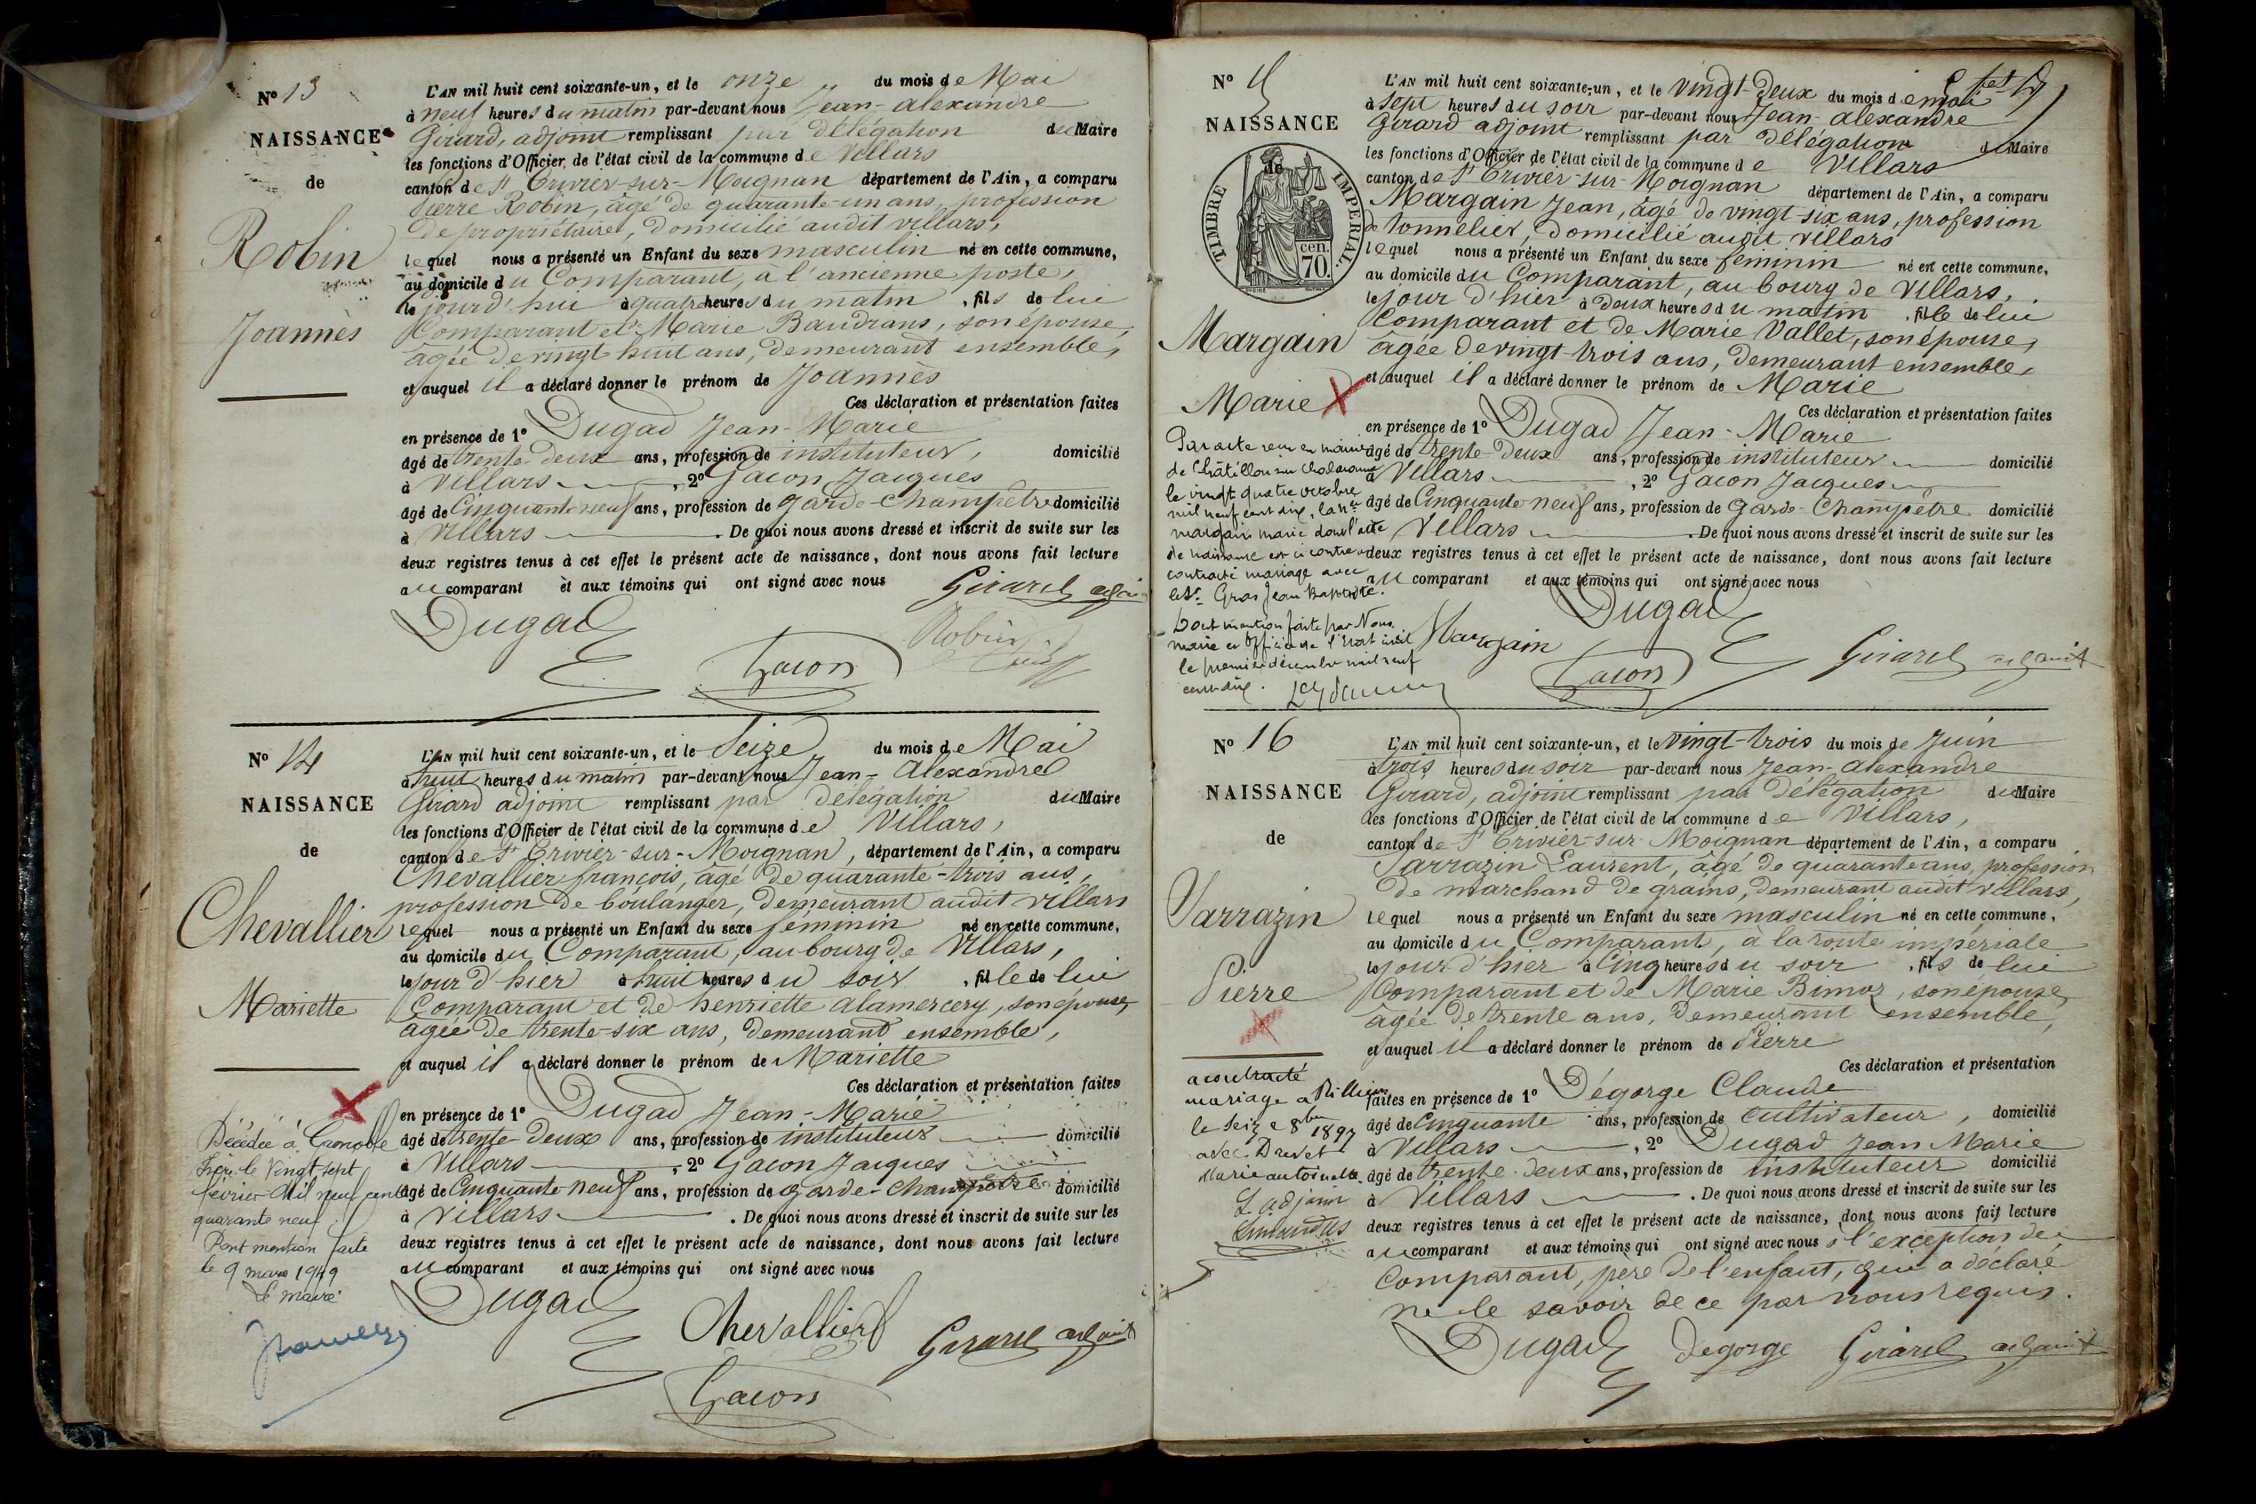 N° 13
NAISSANCE
de
Robin
Joannès
L'AN mil huit cent soixante-un, et le onze du mois de Mai
à neuf heures du matin par-devant nous Jean-Alexandre
Girard, adjoint remplissant par délégation du Maire
les fonctions d'Officier de l'état civil de la commune de Villars
canton de St Trivier-sur-Moignan département de l'Ain, a comparu
Pierre Robin, âgé de quarante-un ans, profession
de propriétaire, domicilié audit villars,
lequel nous a présenté un Enfant du sexe masculin né en cette commune,
au domicile du Comparant, à l'ancienne poste,
le jourd'hui à quatre heures du matin, fils de lui
Comparant et Marie Baudrans, son épouse,
âgée de vingt huit ans, demeurant ensemble,
et auquel il a déclaré donner le prénom de Joannès
Ces déclaration et présentation faites
en présence de 1° Dugad Jean-Marie
âgé de trente-deux ans, profession de instituteur, domicilié
à Villars, 2° Gacon Jacques
âgé de Cinquante neuf ans, profession de garde-Champêtre domicilié
à Villars. De quoi nous avons dressé et inscrit de suite sur les
deux registres tenus à cet effet le présent acte de naissance, dont nous avons fait lecture
au comparant et aux témoins qui ont signé avec nous
Girard adjoint
Dugad
Robin
Gacon
N° 14
NAISSANCE
de
Chevallier
Mariette
Décédée à Grenoble
Isère le vingt sept
février Mil neuf cent
quarante neuf
Dont mention faite
le 9 mars 1949
Le maire
L'AN mil huit cent soixante-un, et le Seize du mois de Mai
à huit heures du matin par-devant nous Jean-Alexandre
Girard adjoint remplissant par délégation du Maire
les fonctions d'Officier de l'état civil de la commune de Villars,
canton de St Trivier-sur-Moignan, département de l'Ain, a comparu
Chevallier françois, âgé de quarante-trois ans,
profession de boulanger, demeurant audit villars
lequel nous a présenté un Enfant du sexe féminin né en cette commune,
au domicile du Comparant, au bourg de Villars,
le jour d'hier à huit heures du soir, fille de lui
Comparant et de henriette alamercery, son épouse,
âgée de trente-six ans, demeurant ensemble,
et auquel il a déclaré donner le prénom de Mariette
Ces déclaration et présentation faites
en présence de 1° Dugad Jean-Marie
âgé de trente-deux ans, profession de instituteur domicilié
à Villars, 2° Gacon Jacques
âgé de Cinquante neuf ans, profession de garde-Champêtre domicilié
à Villars. De quoi nous avons dressé et inscrit de suite sur les
deux registres tenus à cet effet le présent acte de naissance, dont nous avons fait lecture
au comparant et aux témoins qui ont signé avec nous
Dugad
Chevallier
Girard adjoint
Gacon
N° 15
NAISSANCE
TIMBRE IMPERIAL.
cen.
70.
Margain
Marie
Par acte reçu en mairie
de Châtillon sur Chalaronne
le vingt quatre octobre
mil neuf cent dix, la
margain marie dont l'acte
de naissance est ci contre a
contracté mariage avec
le Sr Gros Jean Baptiste.
Dont mention faite par Nous
maire et Officier de l'Etat civil
le premier décembre mil neuf
cent dix.
L'AN mil huit cent soixante-un, et le vingt-deux du mois de mai
à sept heures du soir par-devant nous Jean-alexandre
Girard adjoint remplissant par délégation du Maire
les fonctions d'Officier de l'état civil de la commune de Villars
canton de St Trivier-sur-Moignan département de l'Ain, a comparu
Margain Jean, âgé de vingt-six ans, profession
de tonnelier, domicilié audit villars
lequel nous a présenté un Enfant du sexe féminin né en cette commune,
au domicile du Comparant, au bourg de Villars,
le jour d'hier à deux heures du matin, fille de lui
Comparant et de Marie Vallet, son épouse,
âgée de vingt-trois ans, demeurant ensemble,
et auquel il a déclaré donner le prénom de Marie
Ces déclaration et présentation faites
en présence de 1° Dugad Jean-Marie
âgé de trente-deux ans, profession de instituteur domicilié
à Villars, 2° Gacon Jacques
âgé de Cinquante neuf ans, profession de Garde-Champêtre domicilié
à Villars. De quoi nous avons dressé et inscrit de suite sur les
deux registres tenus à cet effet le présent acte de naissance, dont nous avons fait lecture
au comparant et aux témoins qui ont signé avec nous
Dugad
Margain
Gacon
Girard adjoint
N° 16
NAISSANCE
de
Sarrazin
Pierre
a contracté
mariage a Rillieux
le Seize 8bre 1897
avec Druet
Marie antoinette
L'adjoint
L'AN mil huit cent soixante-un, et le vingt-trois du mois de Juin
à trois heures du soir par-devant nous Jean-Alexandre
Girard, adjoint remplissant par délégation du Maire
les fonctions d'Officier de l'état civil de la commune de Villars,
canton de St Trivier-sur-Moignan département de l'Ain, a comparu
Sarrazin Laurent, âgé de quarante ans, profession
de marchand de grains, demeurant audit villars,
lequel nous a présenté un Enfant du sexe masculin né en cette commune,
au domicile du Comparant, à la route impériale
le jour d'hier à Cinq heures du soir, fils de lui
Comparant et de Marie Bimoz, son épouse
âgée de trente ans, demeurant ensemble,
et auquel il a déclaré donner le prénom de Pierre
Ces déclaration et présentation
faites en présence de 1° Dégorge Claude
âgé de Cinquante ans, profession de Cultivateur, domicilié
à Villars, 2° Dugad Jean Marie
âgé de trente-deux ans, profession de instituteur domicilié
à Villars. De quoi nous avons dressé et inscrit de suite sur les
deux registres tenus à cet effet le présent acte de naissance, dont nous avons fait lecture
au comparant et aux témoins qui ont signé avec nous à l'exception du
Comparant, père de l'enfant, qui a déclaré
ne le savoir de ce par nous requis.
Dugad
Degorge
Girard adjoint